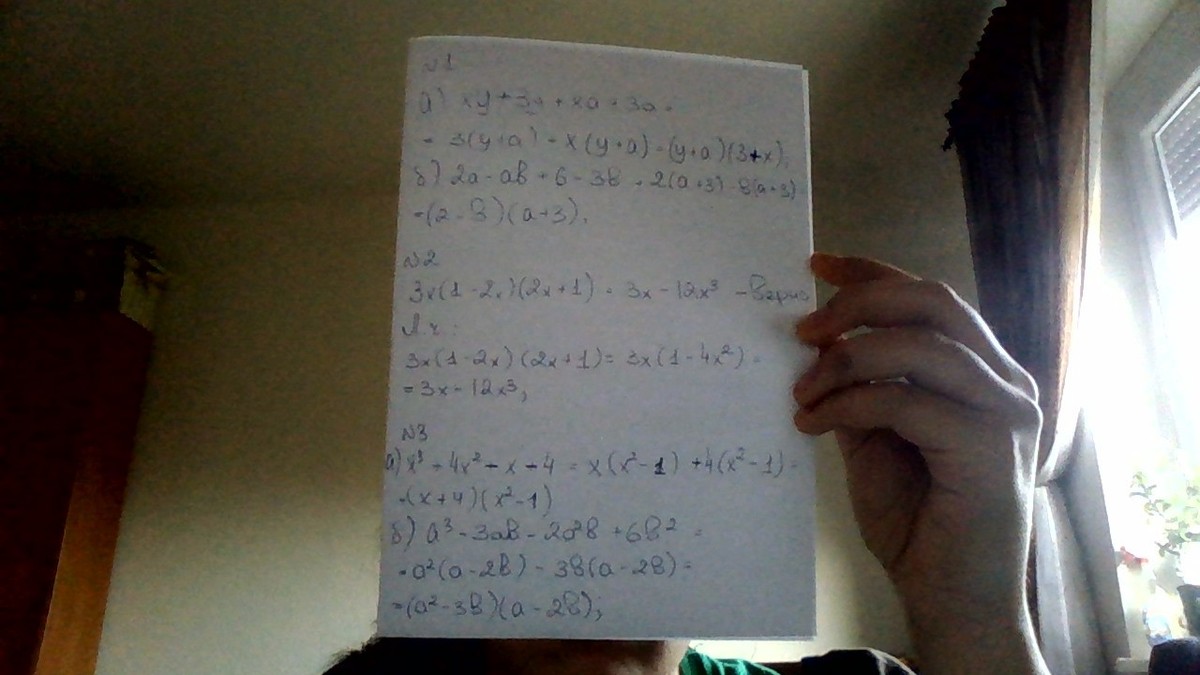 №1
а) xy + 3y + xa + 3a =
= 3(y+a) + x(y+a) = (y+a)(3+x);
б) 2a - ab + 6 - 3b = 2(a+3) - b(a+3)
= (2 - b)(a+3);
№2
3x(1-2x)(2x+1) = 3x - 12x³ - Верно
Л.ч:
3x(1-2x)(2x+1) = 3x(1-4x²) =
= 3x - 12x³;
№3
а) x³ + 4x² - x - 4 = x(x²-1) + 4(x²-1) =
= (x+4)(x²-1)
б) a³ - 3ab - 2a²b + 6b² =
= a²(a-2b) - 3b(a-2b) =
= (a²-3b)(a-2b);